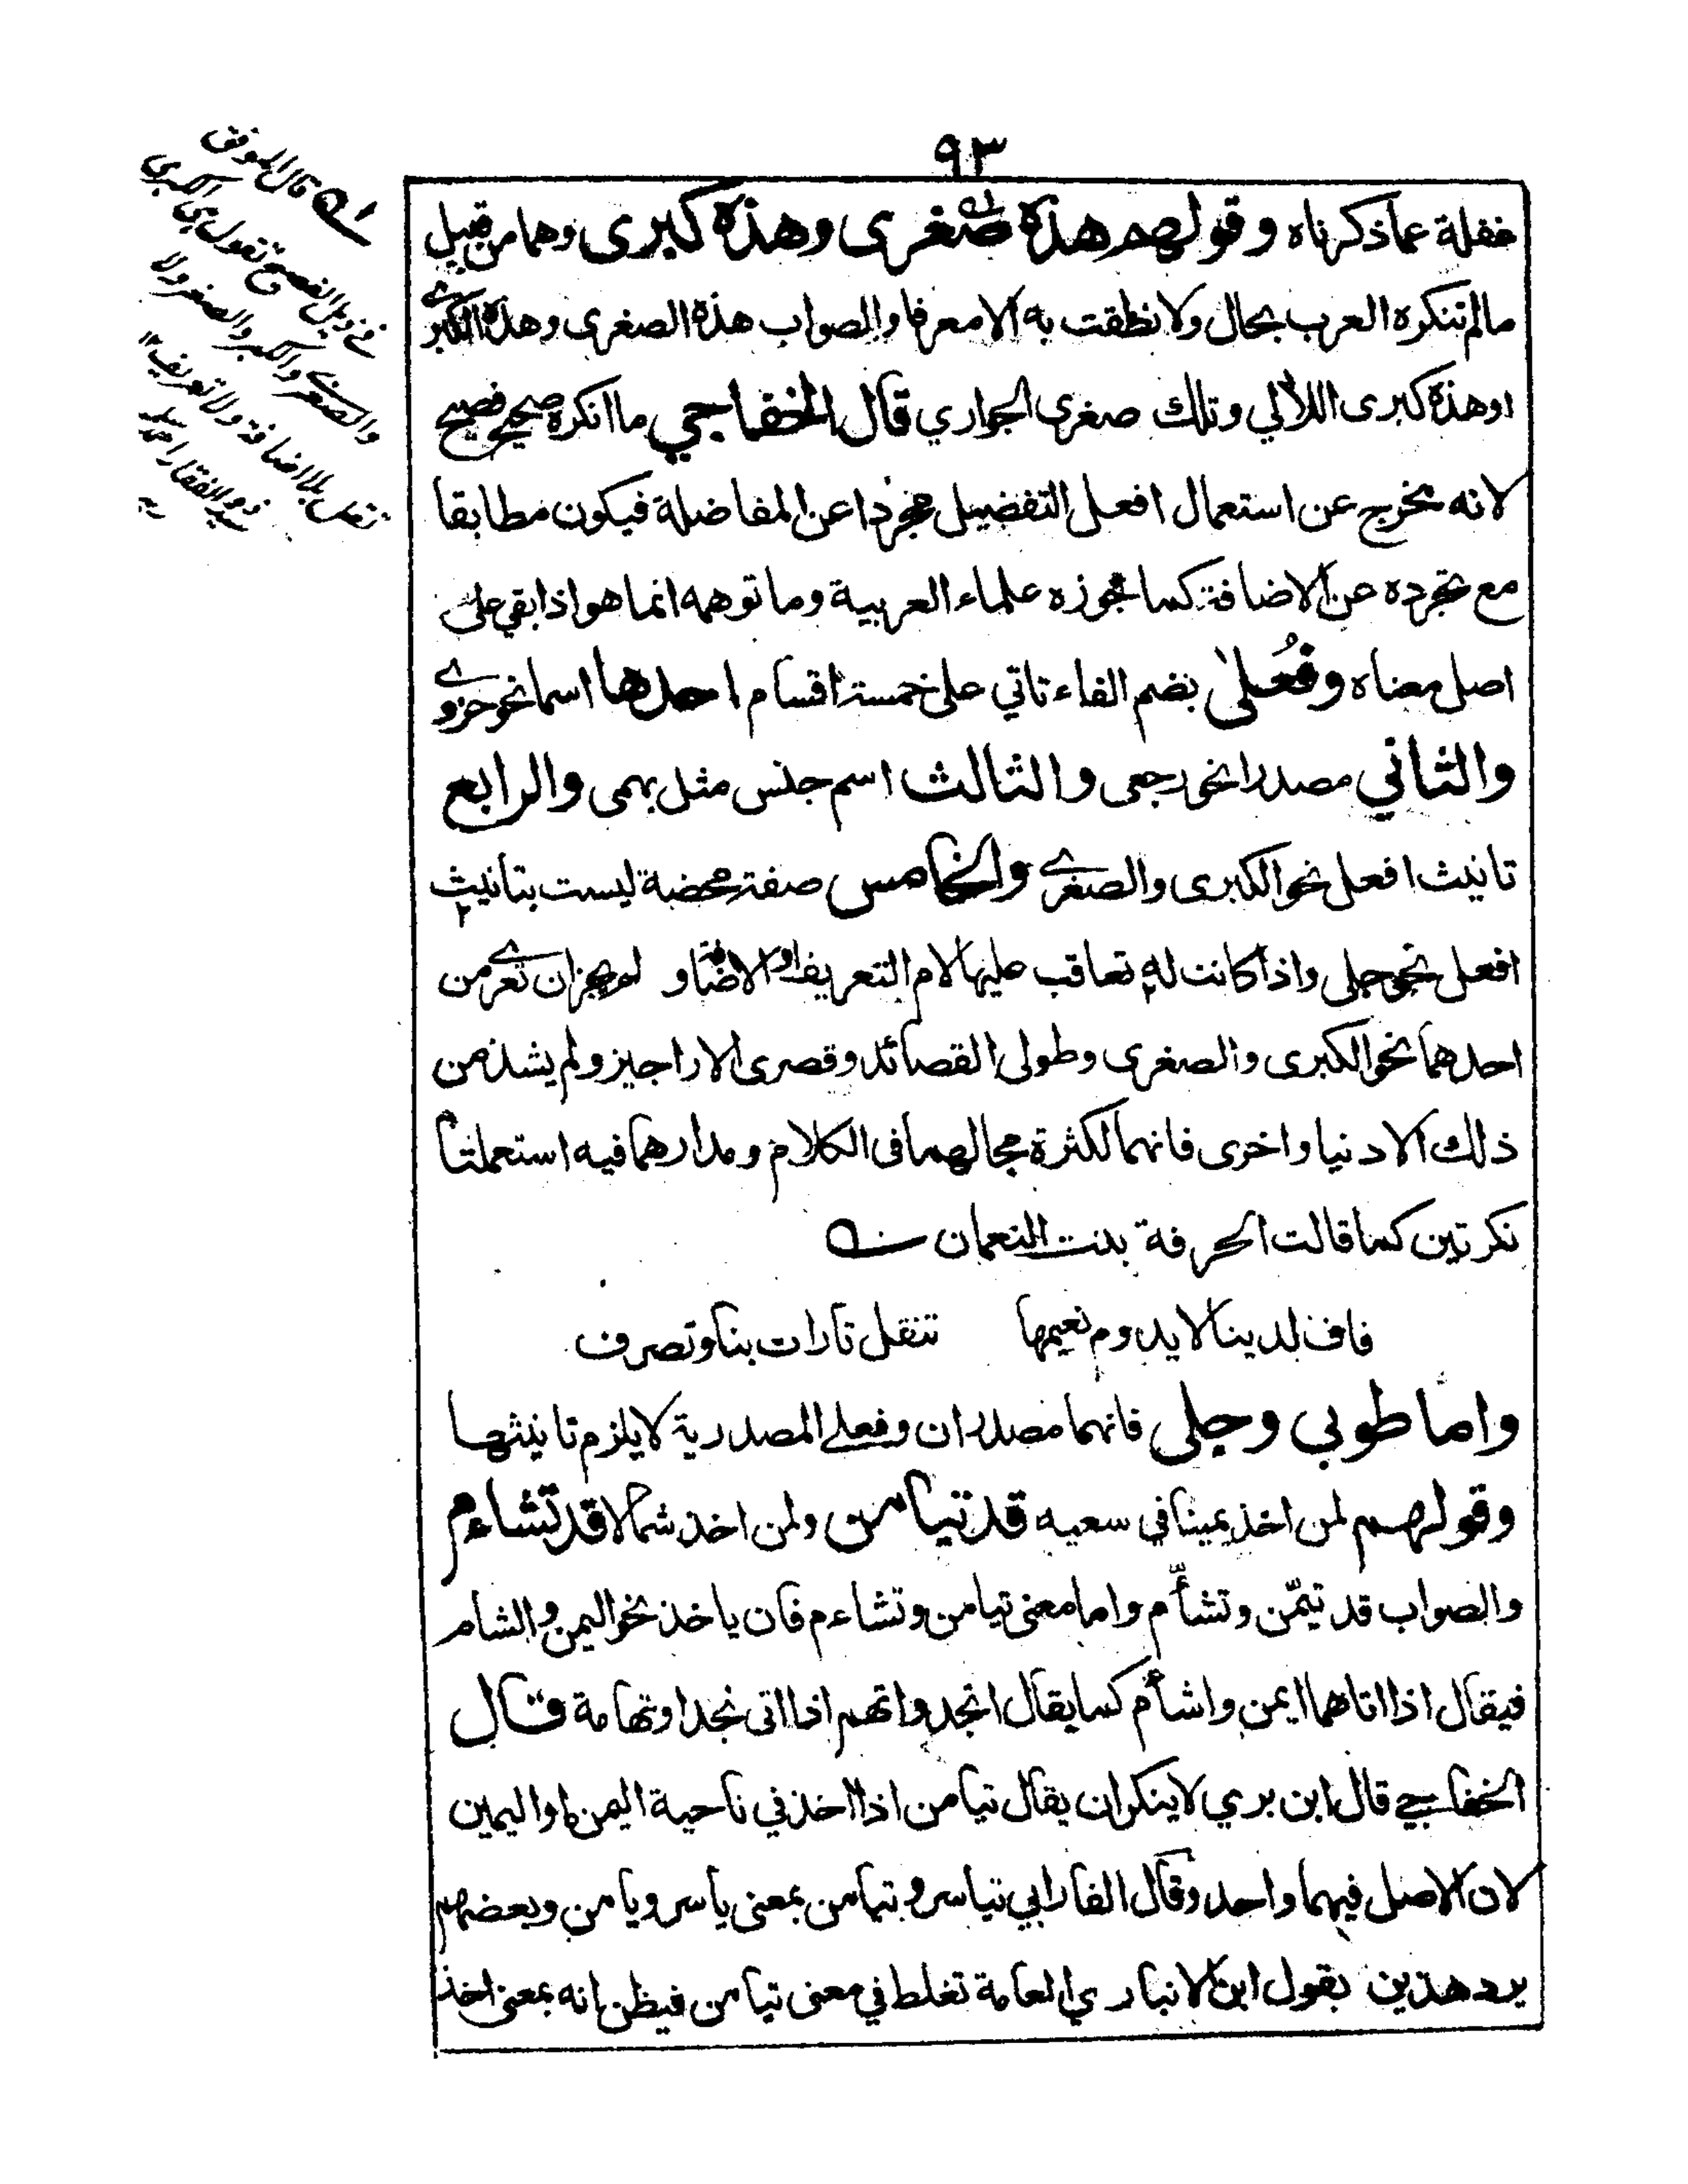 ٩٣
غفلة عما ذكرناه وقولهم هذه صغرى وهذه كبرى وهما من قبيل
مالم تنكره العرب بحال ولا نطقت به الا معرفا والصواب هذه الصغرى وهذه الكبرى
او هذه كبرى اللآلي وتلك صغرى الجواري قال الخفاجي ما انكره صحيح فصيح
لانه يخرج عن استعمال افعل التفضيل مجردا عن المفاضلة فيكون مطابقا
مع تجرده عن الاضافة كما جوزه علماء العربية وما توهمه انما هو اذا بقي على
اصل معناه وفُعلى بضم الفاء تاتي على خمسة اقسام احدها اسما نحو حزوى
والثاني مصدرا نحو رجعى والثالث اسم جنس مثل بهمى والرابع
تانيث افعل نحو الكبرى والصغرى والخامس صفة محضة ليست بتانيث
افعل نحو حبلى واذا كانت له تعاقب عليها لام التعريف او الاضافة و لم يجز ان تعرى من
احدهما نحو الكبرى والصغرى وطولى القصائد وقصرى الاراجيز ولم يشذ من
ذلك الا دنيا واخرى فانهما لكثرة مجالهما فى الكلام ومدارهما فيه استعملتا
نكرتين كما قالت الحرقة بنت النعمان
فاف لدينا لا يدوم نعيمها تنقل تارات بنا وتصرف
واما طوبى وجلى فانهما مصدران وفعلى المصدرية لا يلزم تانيثها
وقولهم لمن اخذ يمينا في سعيه قد تيامن ولمن اخذ شمالا قد تشاءم
والصواب قد تيمّن وتشأّم واما معنى تيامن وتشاءم فان ياخذ نحو اليمن والشام
فيقال اذا اتاهما ايمن واشأم كما يقال انجد واتهم اذا اتى نجدا وتهامة قال
الخفاجي قال ابن بري لا ينكر ان يقال تيامن اذا اخذ في ناحية اليمن او اليمين
لان الاصل فيهما واحد وقال الفارابي تياسر وتيامن بمعنى ياسر ويامن وبعضهم
يرد هذين بقول ابن الانباري العامة تغلط في معنى تيامن فيظن انه بمعنى اخذ
قال الموفق
في ذيل الفصيح تقول هي الكبرى
والصغرى والكبر والصغر ولا
تقل بلا اضافة ولا تعريف ١٢
ذو الفقار احمد